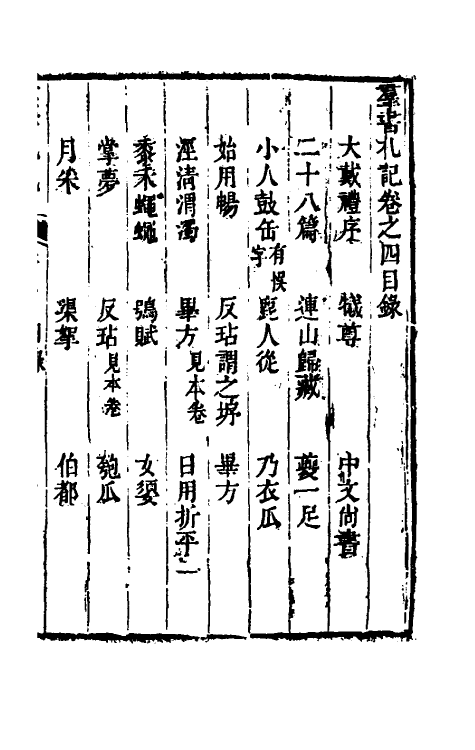 羣書札記卷之四目錄
大戴禮序　犧尊　中文尚書
二十八篇　連山歸藏　夔一足
小人鼓缶有悮字　鹿人從　乃衣瓜
始用暢　反坫謂之坫　畢方
涇清渭濁　畢方見本卷　日用折平一
黍禾蠅蠅　鴞賦　女媭
掌夢　反坫見本卷　匏瓜
月采　渠挐　伯都